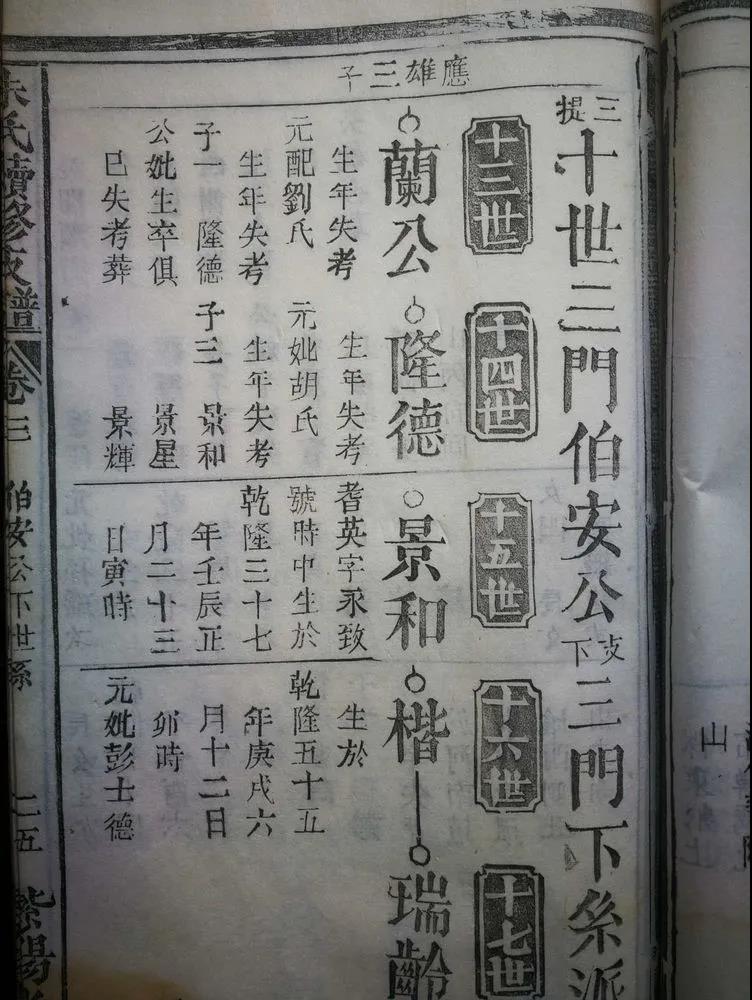 三提
十世三門伯安公支下三門下糸派
十三世
十四世
十五世
十六世
十七世
應雄三子
蘭公
生年失考
元配劉氏
生年失考
子一 隆德
公妣生卒俱
已失考葬
隆德
生年失考
元妣胡氏
生年失考
子三 景和
景星
景輝
景和
耆英字永致
號時中生於
乾隆三十七
年壬辰正
月二十三
日寅時
楷
生於
乾隆五十五
年庚戌六
月十二日
卯時
元妣彭士德
瑞齡
朱氏續修支譜
卷三
伯安公下世系
二五
紫陽
山